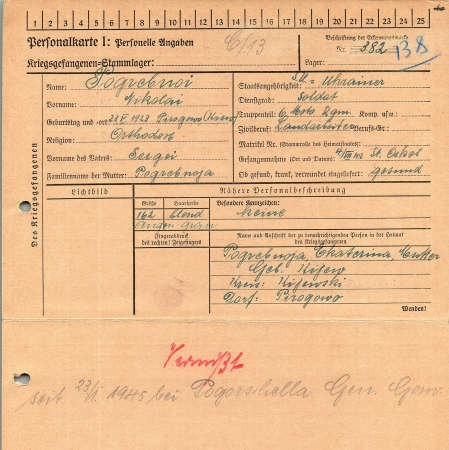 1 2 3 4 5 6 7 8 9 10 11 12 13 14 15 16 17 18 19 20 21 22 23 24 25
Personalkarte I: Personelle Angaben
Kriegsgefangenen-Stammlager:
Beschriftung der Erkennungsmarke
Nr. 382 138
Lager:
Des Kriegsgefangenen
Name: Pogrebnoi
Vorname: Nikolai
Geburtstag und -ort 1923 Pirogowo
Religion: Orthodox
Vorname des Vaters: Sergei
Familienname der Mutter: Pogrebnoja
Staatsangehörigkeit: S.U. = Ukrainer
Dienstgrad: Soldat
Truppenteil: 6. Moto Rgm. Komp. usw.:
Zivilberuf: Landarbeiter Berufs-Gr.:
Matrikel Nr. (Stammrolle des Heimatstaates):
Gefangennahme (Ort und Datum): St. Oskol
Ob gesund, krank, verwundet eingeliefert: gesund
Lichtbild
Nähere Personalbeschreibung
Größe Haarfarbe
162 blond
Augen grau
Besondere Kennzeichen:
keine
Fingerabdruck
des rechten! Zeigefingers
Name und Anschrift der zu benachrichtigenden Person in der Heimat
des Kriegsgefangenen
Pogrebnoja, Ekaterina, Mutter
Geb. Kijew
Kreis: Kijewski
Dorf: Pirogowo
Wenden!
Vermißt
seit 23/I. 1945 bei Pogorschella Gen. Gouv.